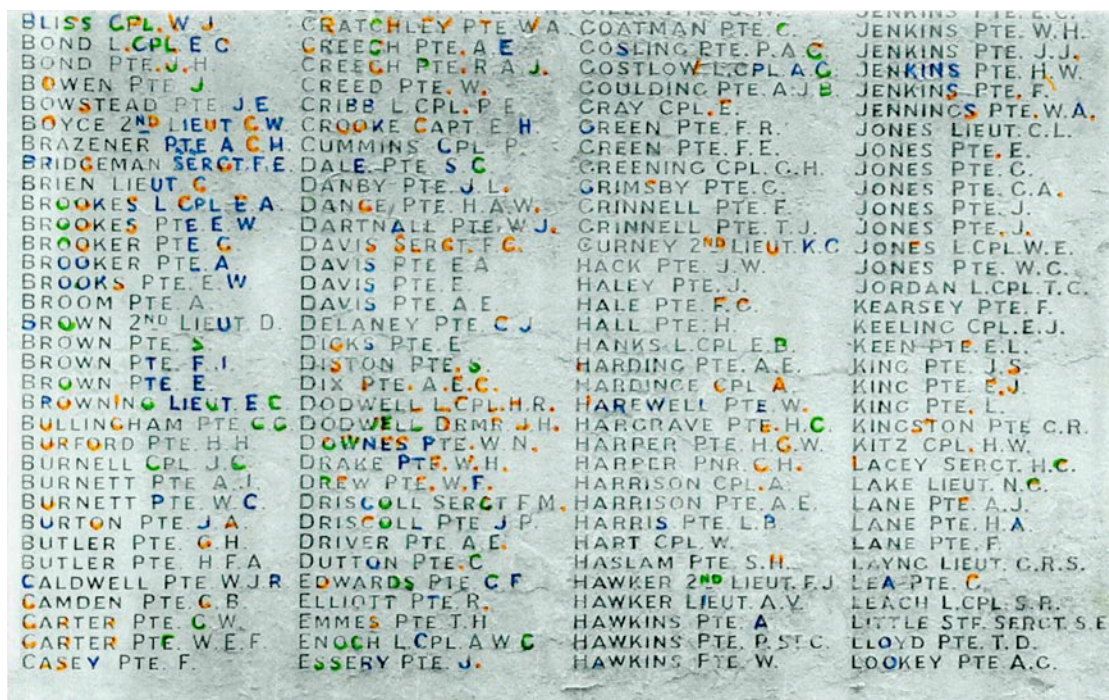 BLISS CPL. W J
BOND L.CPL E C
BOND PTE. J. H.
BOWEN PTE J
BOWSTEAD PTE. J. E.
BOYCE 2ND LIEUT G.W
BRAZENER PTE A G.H
BRIDGEMAN SERGT. F.E.
BRIEN LIEUT G
BROOKES L CPL E A
BROOKES PTE E.W
BROOKER PTE G.
BROOKER PTE. A
BROOKS PTE. E.W
BROOM PTE A.
BROWN 2ND LIEUT D.
BROWN PTE S
BROWN PTE F. I
BROWN PTE E.
BROWNING LIEUT. E C
BULLINGHAM PTE C.G.
BURFORD PTE H.H
BURNELL CPL J.G.
BURNETT PTE A.J.
BURNETT PTE W.C
BURTON PTE J A
BUTLER PTE. G.H.
BUTLER PTE H F.A
CALDWELL PTE W.J.R
CAMDEN PTE G.B.
CARTER PTE C W.
CARTER PTE W.E.F.
CASEY PTE. F.
CRATCHLEY PTE W A
CREECH PTE. A E
CREECH PTE. R. A J.
CREED PTE. W.
CRIBB L.CPL. P E
CROOKE CAPT E H.
CUMMINS CPL P
DALE PTE S C
DANBY PTE. J. L.
DANCE PTE. H.A.W.
DARTNALL PTE. W.J.
DAVIS SERGT. F G.
DAVIS PTE E A
DAVIS PTE. E.
DAVIS PTE A E
DELANEY PTE. C J
DICKS PTE. E
DISTON PTE. S.
DIX PTE. A.E.C.
DODWELL L.CPL. H.R.
DODWELL DRMR. J.H.
DOWNES PTE. W N.
DRAKE PTE. W.H.
DREW PTE. W.F.
DRISCOLL SERGT F M.
DRISCOLL PTE J P.
DRIVER PTE A.E.
DUTTON PTE. C
EDWARDS PTE C F
ELLIOTT PTE R.
EMMES PTE T.H
ENOCH L.CPL A W C
ESSERY PTE. J.
GOATMAN PTE C.
GOSLING PTE. P.A.C
GOSTLOW L.CPL A.G.
GOULDING PTE A.J B.
GRAY CPL. E.
GREEN PTE. F. R.
GREEN PTE. F.E.
GREENING CPL. G.H.
GRIMSBY PTE. C.
GRINNELL PTE. F.
GRINNELL PTE. T. J.
GURNEY 2ND LIEUT. K.C
HACK PTE. J.W.
HALEY PTE. J.
HALE PTE. F.G.
HALL PTE. H.
HANKS L.CPL E.B
HARDING PTE. A.E.
HARDINGE CPL A.
HAREWELL PTE W.
HARGRAVE PTE. H.C
HARPER PTE H.G.W.
HARPER PNR. G.H.
HARRISON CPL. A.
HARRISON PTE A.E.
HARRIS PTE. L.B
HART CPL. W.
HASLAM PTE S.H.
HAWKER 2ND LIEUT. F.J
HAWKER LIEUT. A.V.
HAWKINS PTE. A
HAWKINS PTE. P. ST C.
HAWKINS PTE. W.
JENKINS PTE. E.C.
JENKINS PTE. W.H.
JENKINS PTE. J.J.
JENKINS PTE. H.W.
JENKINS PTE. F.
JENNINGS PTE. W.A.
JONES LIEUT. C.L.
JONES PTE. E.
JONES PTE. G.
JONES PTE. C.A.
JONES PTE. J.
JONES PTE. J.
JONES L.CPL. W.E.
JONES PTE. W.G.
JORDAN L.CPL. T.C.
KEARSEY PTE. F.
KEELING CPL. E.J.
KEEN PTE. E.L.
KING PTE. J.S
KING PTE. E.J
KING PTE. L.
KINGSTON PTE C.R.
KITZ CPL. H.W.
LACEY SERGT. H.C.
LAKE LIEUT. N.G.
LANE PTE A.J.
LANE PTE. H.A
LANE PTE. F
LAYNG LIEUT. G.R.S.
LEA PTE. C.
LEACH L.CPL. S.R.
LITTLE STF. SERGT. S.E
LLOYD PTE. T.D.
LOOKEY PTE A.G.